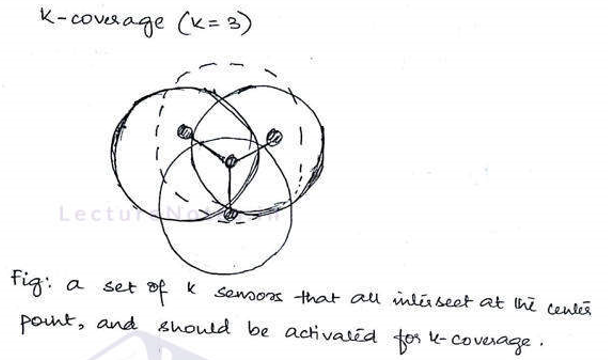 K-coverage (K=3)
LectureNotes.in
Fig: a set of K sensors that all intersect at the center
point, and should be activated for k-coverage.